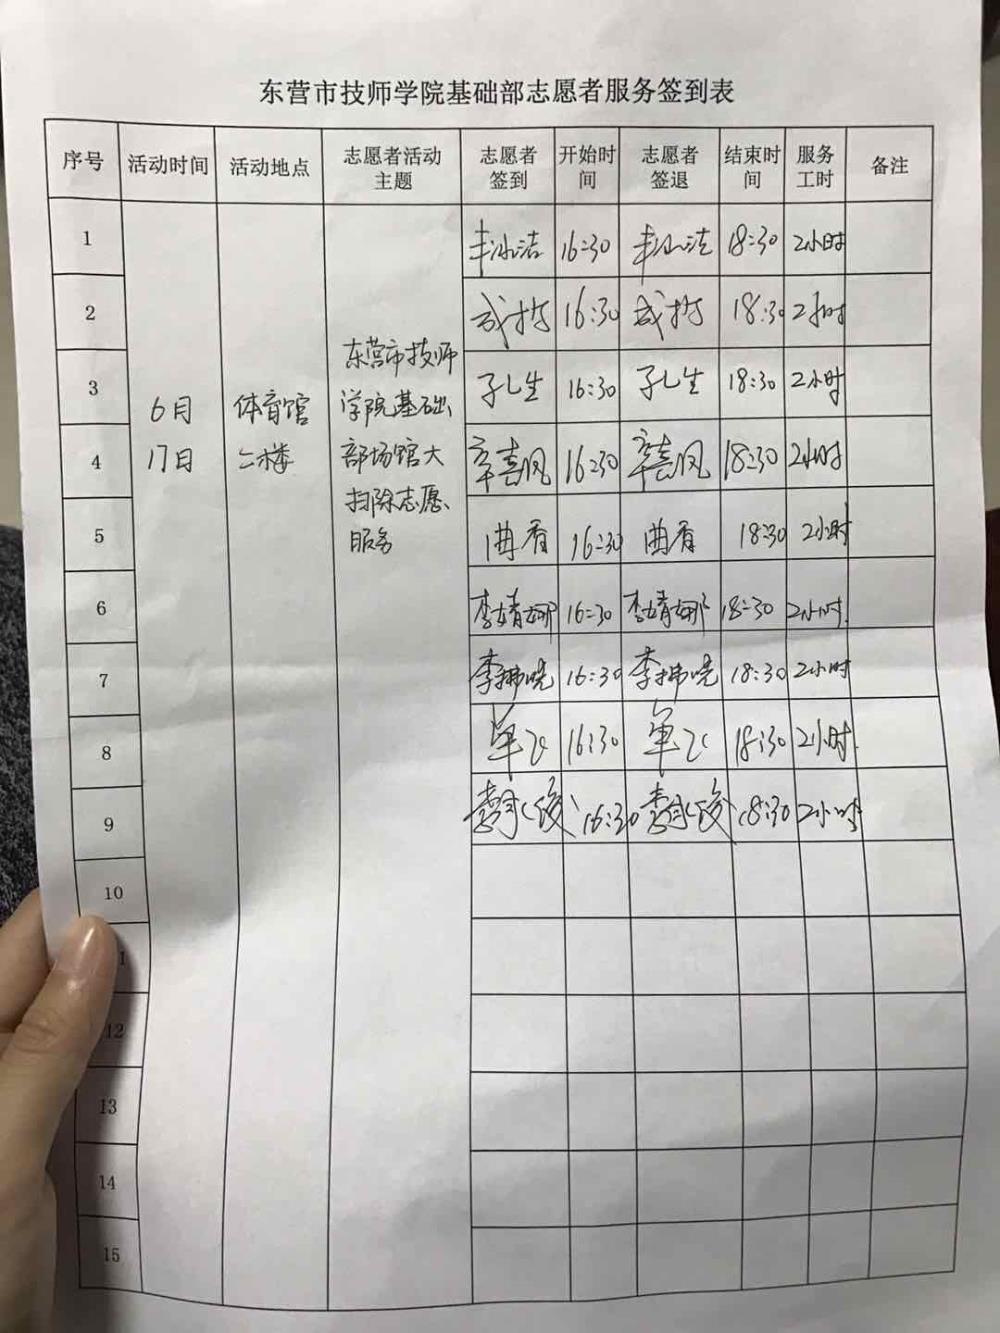 东营市技师学院基础部志愿者服务签到表
序号 活动时间 活动地点 志愿者活动主题 志愿者签到 开始时间 志愿者签退 结束时间 服务工时 备注
6月
17日
体育馆
二楼
东营市技师
学院基础
部场馆大
扫除志愿
服务
1 丰冰洁 16:30 丰冰洁 18:30 2小时
2 16:30 18:30 2小时
3 孔生 16:30 孔生 18:30 2小时
4 辛喜凤 16:30 辛喜凤 18:30 2小时
5 曲香 16:30 曲香 18:30 2小时
6 李婧娜 16:30 李婧娜 18:30 2小时
7 李 晓 16:30 李 晓 18:30 2小时
8 单飞 16:30 单飞 18:30 2小时
9 16:30 18:30 2小时
10
12
13
14
15